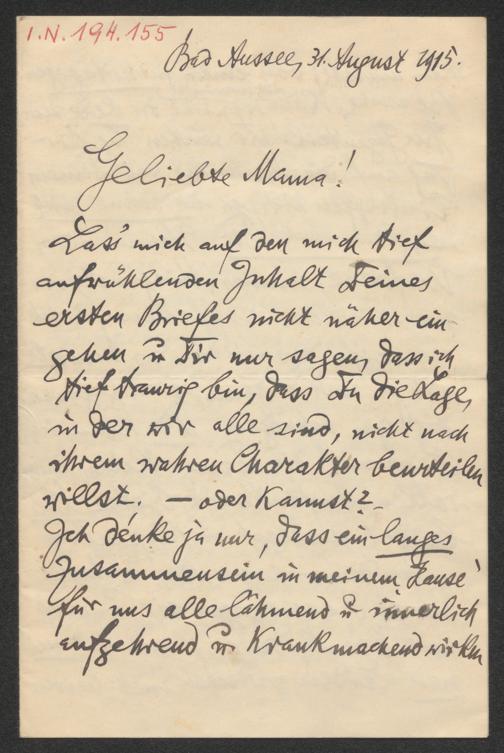 I.N. 194.155
Bad Aussee, 31. August 1915.
Geliebte Mama!
Lass' mich auf den mich tief
aufwühlenden Inhalt Deines
ersten Briefes nicht näher ein-
gehen u Dir nur sagen, dass ich
tief traurig bin, dass Du die Lage,
in der wir alle sind, nicht nach
ihrem wahren Charakter beurteilen
willst. – oder kannst? –
Ich denke ja nur, dass ein langes
Zusammensein in meinem Hause
für uns alle lähmend u innerlich
aufzehrend u krankmachend wirken